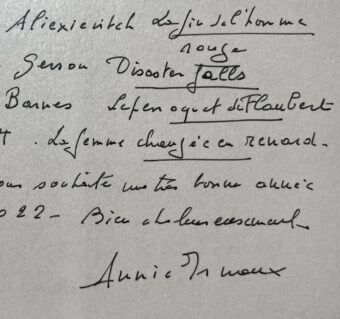 Alexievitch La fin de l'homme
rouge
Gerson Disaster falls
Barnes Le perroquet de Flaubert
. La femme changée en renard -
ous souhaite une très bonne année
22 - Bien chaleureusement
Annie Ernaux